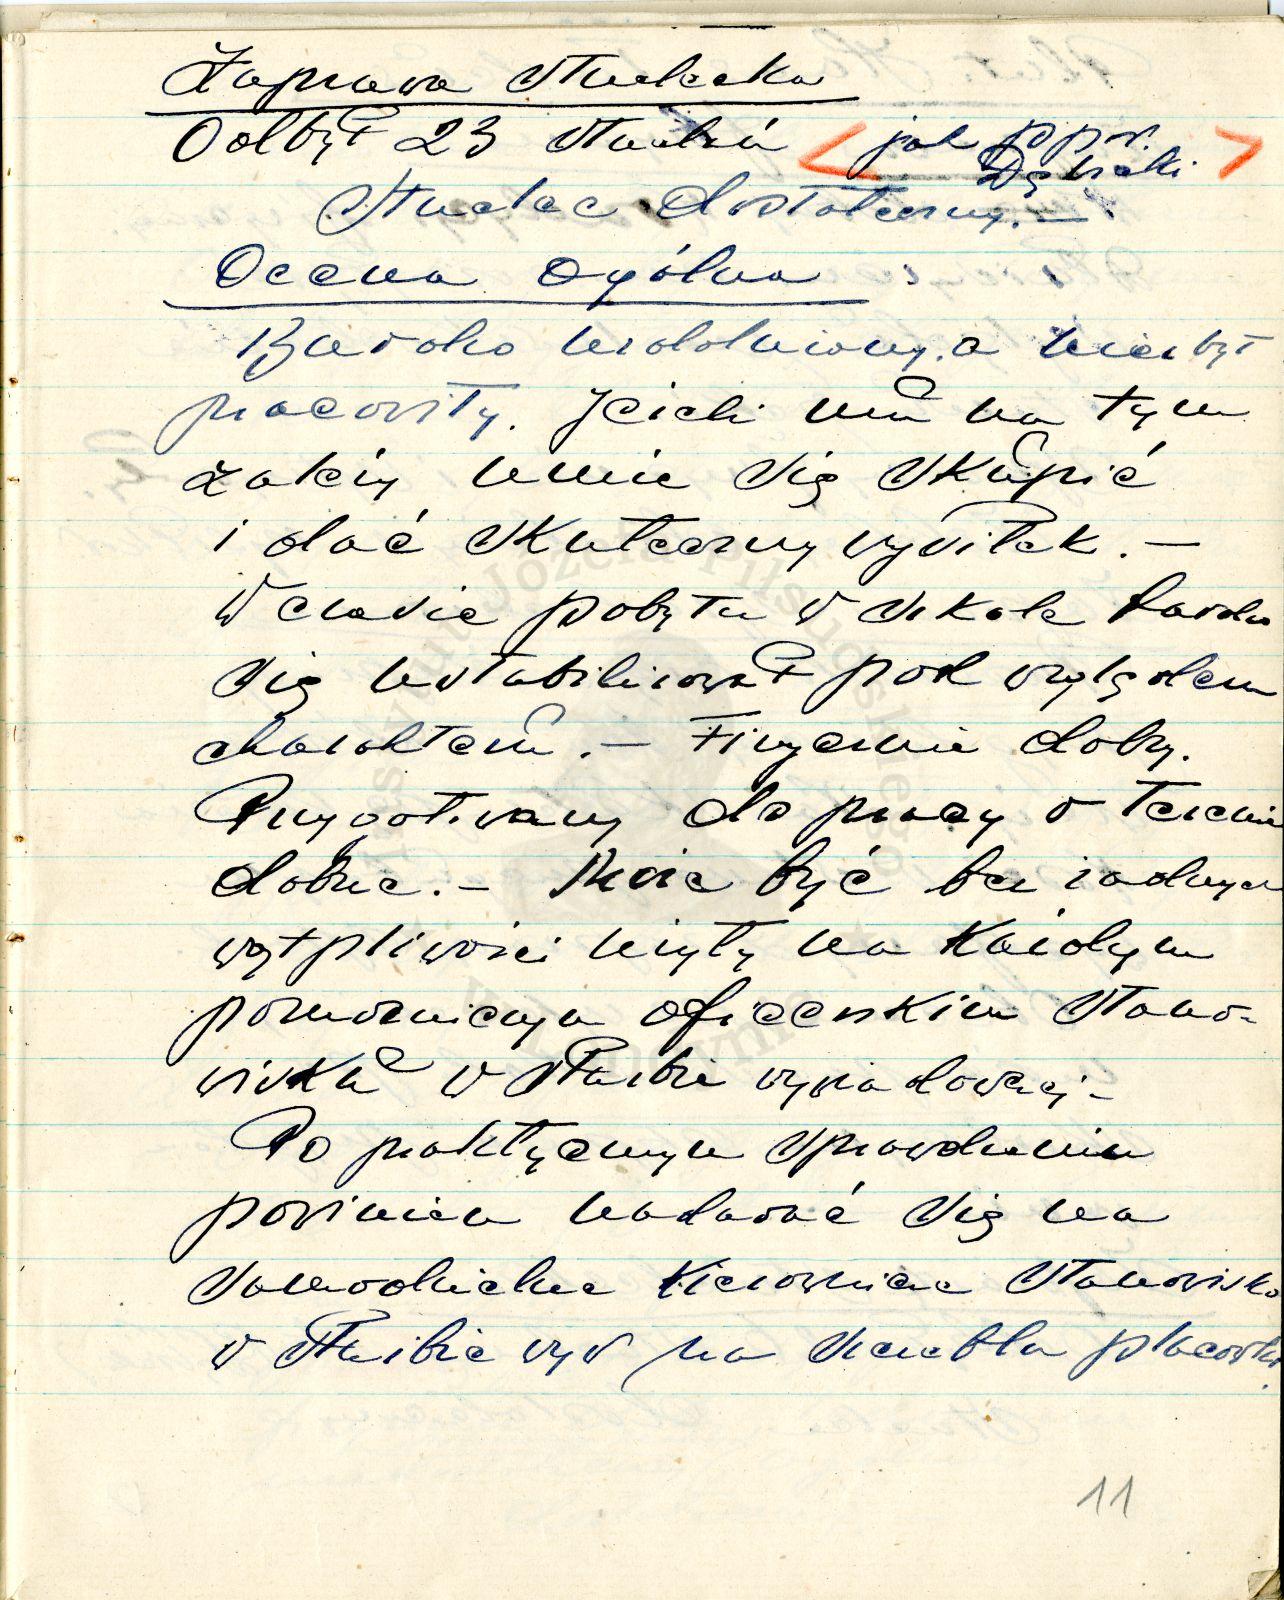 Zaprawa strzelecka
Odbył 23 strzelań < jak ppor. >
Dębicki
Strzelec dostateczny. —
Ocena ogólna :
Bardzo uzdolniony, a nierbyt
pracowity. Jeżeli mu na tym
zależy umie się skupić
i dać skuteczny wysiłek. —
W czasie pobytu w szkole bardzo
się ustabilizował pod względem
charakteru. — Fizycznie dobry.
Przygotowany do pracy w terenie
dobrze. — Może być bez żadnych
wątpliwości użyty na każdym
pomocniczym oficerskim stano-
wisku w służbie wywiadowczej —
Po praktycznym sprawdzeniu
powinien nadawać się na
samodzielne kierownicze stanowisko
w służbie wyw na szczeblu placówki.
11
Instytut Józefa Piłsudskiego